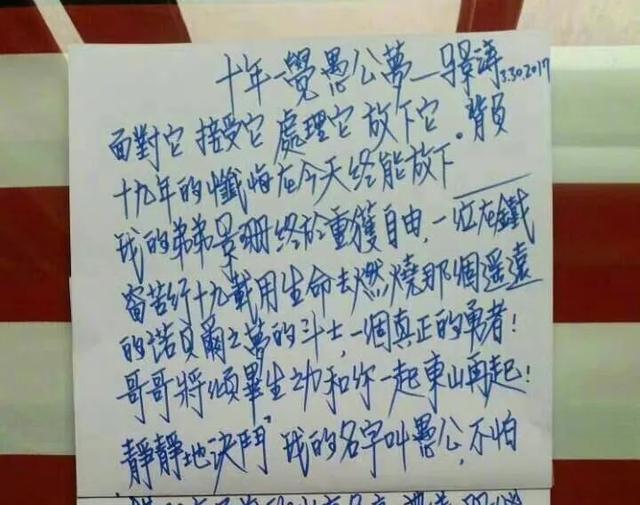 十年一覺愚公夢—景濤 3.30.2017
面對它 接受它 處理它 放下它。背負
十九年的懺悔在今天终能放下——
我的弟弟景珊终於重獲自由，一位在鐵
窗苦行十九載用生命去燃燒那個遥遠
的诺貝爾之夢的斗士，一個真正的勇者！
哥哥將傾畢生功和你一起東山再起！
靜靜地决鬥“我的名字叫愚公，不怕